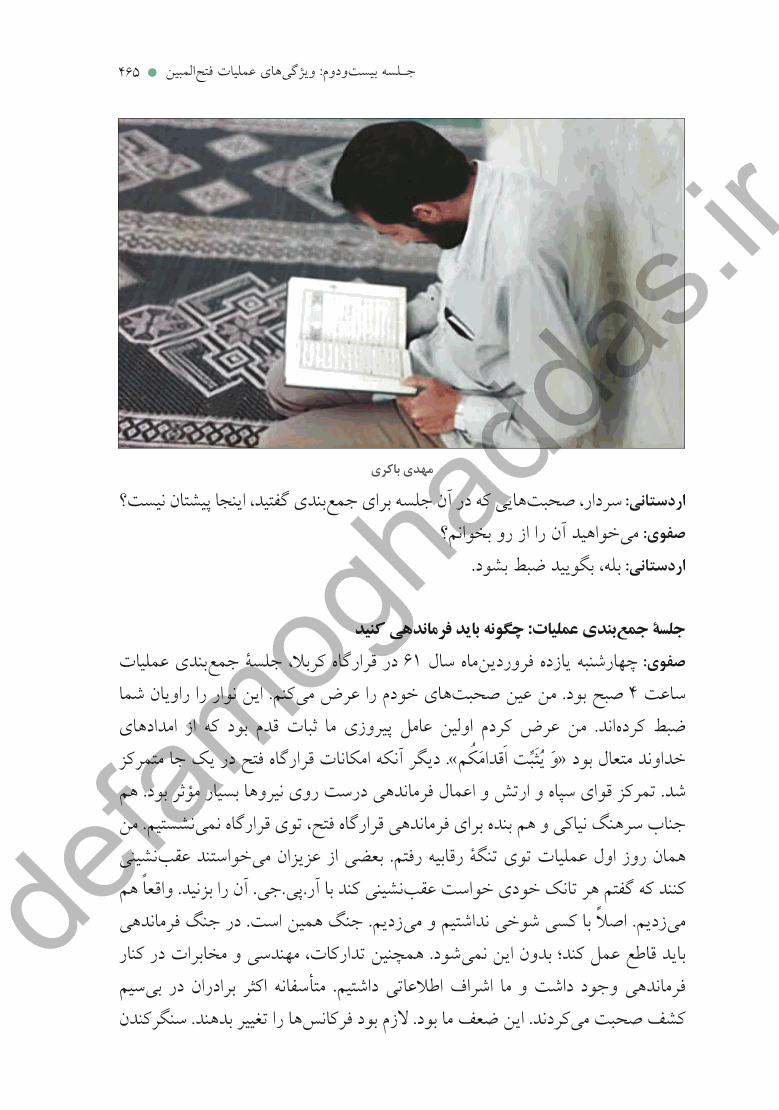 جلسه بیست‌ودوم: ویژگی‌های عملیات فتح‌المبین ● ۴۶۵
مهدی باکری
اردستانی: سردار، صحبت‌هایی که در آن جلسه برای جمع‌بندی گفتید، اینجا پیشتان نیست؟
صفوی: می‌خواهید آن را از رو بخوانم؟
اردستانی: بله، بگویید ضبط بشود.
جلسۀ جمع‌بندی عملیات: چگونه باید فرماندهی کنید
صفوی: چهارشنبه یازده فروردین‌ماه سال ۶۱ در قرارگاه کربلا، جلسۀ جمع‌بندی عملیات
ساعت ۴ صبح بود. من عین صحبت‌های خودم را عرض می‌کنم. این نوار را راویان شما
ضبط کرده‌اند. من عرض کردم اولین عامل پیروزی ما ثبات قدم بود که از امدادهای
خداوند متعال بود «وَ یُثَبِّت اَقدامَکُم». دیگر آنکه امکانات قرارگاه فتح در یک جا متمرکز
شد. تمرکز قوای سپاه و ارتش و اعمال فرماندهی درست روی نیروها بسیار مؤثر بود. هم
جناب سرهنگ نیاکی و هم بنده برای فرماندهی قرارگاه فتح، توی قرارگاه نمی‌نشستیم. من
همان روز اول عملیات توی تنگۀ رقابیه رفتم. بعضی از عزیزان می‌خواستند عقب‌نشینی
کنند که گفتم هر تانک خودی خواست عقب‌نشینی کند با آر.پی.جی. آن را بزنید. واقعاً هم
می‌زدیم. اصلاً با کسی شوخی نداشتیم و می‌زدیم. جنگ همین است. در جنگ فرماندهی
باید قاطع عمل کند؛ بدون این نمی‌شود. همچنین تدارکات، مهندسی و مخابرات در کنار
فرماندهی وجود داشت و ما اشراف اطلاعاتی داشتیم. متأسفانه اکثر برادران در بی‌سیم
کشف صحبت می‌کردند. این ضعف ما بود. لازم بود فرکانس‌ها را تغییر بدهند. سنگرکندن
defamoghaddas.ir